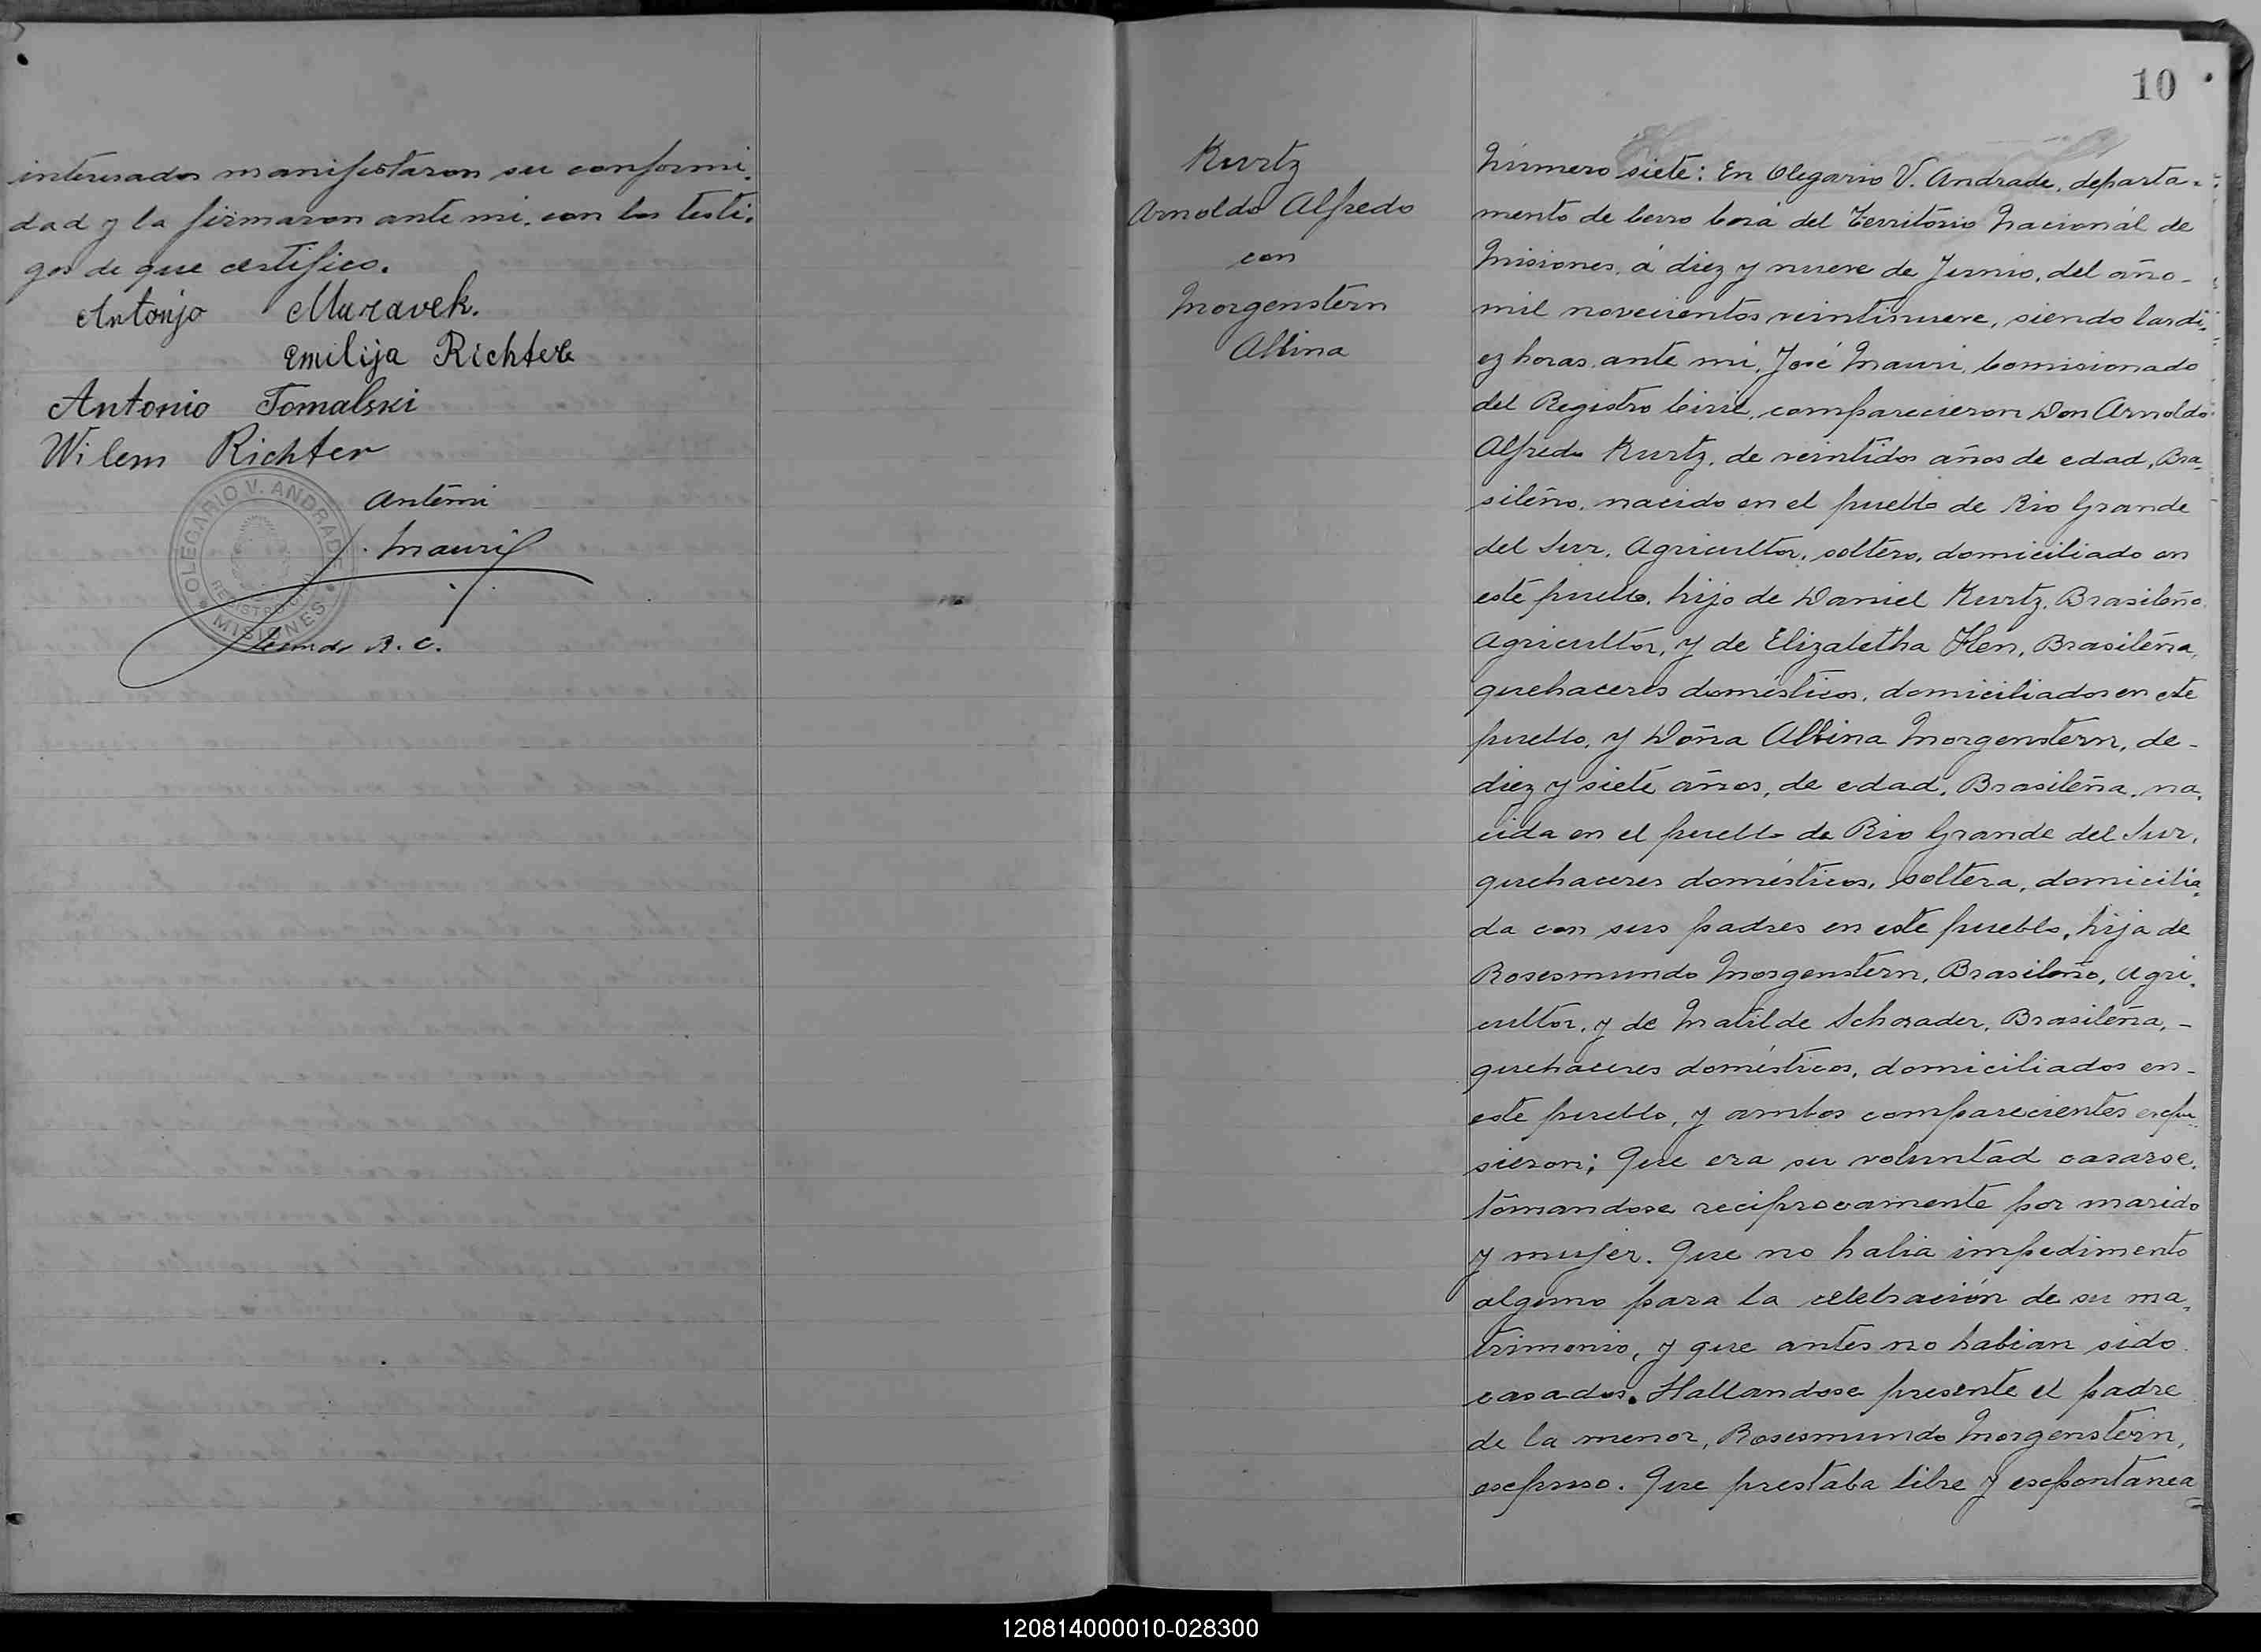 interesados manifestaron su conformi-
dad y la firmaron ante mi, con los testi-
gos de que certifico.
Antonjo Muravek.
Emilija Richter
Antonio Tomalski
Wilem Richter
Antemi
J. Mauri
R. C.
OLEGARIO V. ANDRADE
REGISTRO CIVIL
MISIONES
10
Kurtz
Arnoldo Alfredo
con
Morgenstern
Albina
Número siete: En Olegario V. Andrade, departa-
mento de Cerro Corá del Território Nacionál de
Misiones, á diez y nueve de Junio, del año-
mil novecientos veintinueve, siendo las di-
ez horas, ante mi, José Mauri, Comisionado
del Registro Civil, comparecieron Don Arnoldo
Alfredo Kurtz, de veintidos años de edad, Bra-
sileño, nacido en el pueblo de Rio Grande
del Sur, Agricultor, soltero, domiciliado en
este pueblo, hijo de Daniel Kurtz, Brasileño,
Agricultor, y de Elizabetha Klen, Brasileña,
quehaceres domésticos, domiciliados en este
pueblo, y Doña Albina Morgenstern, de-
diez y siete años, de edad, Brasileña, na-
cida en el pueblo de Rio Grande del Sur,
quehaceres domésticos, soltera, domicilia-
da con sus padres en este pueblo, hija de
Rosesmundo Morgenstern, Brasileño, Agri-
cultor, y de Matilde Schrader, Brasileña,-
quehaceres domésticos, domiciliados en-
este pueblo, y ambos comparecientes expu-
sieron; Que era su voluntad casarse,
tómandose reciprocamente por marido
y mujer. Que no habia impedimento
alguno para la celebración de su ma-
trimonio, y que antes no habian sido
casados. Hallandose presente el padre
de la menor, Rosesmundo Morgenstern,
expuso. Que prestaba libre y expontanea
120814000010-028300